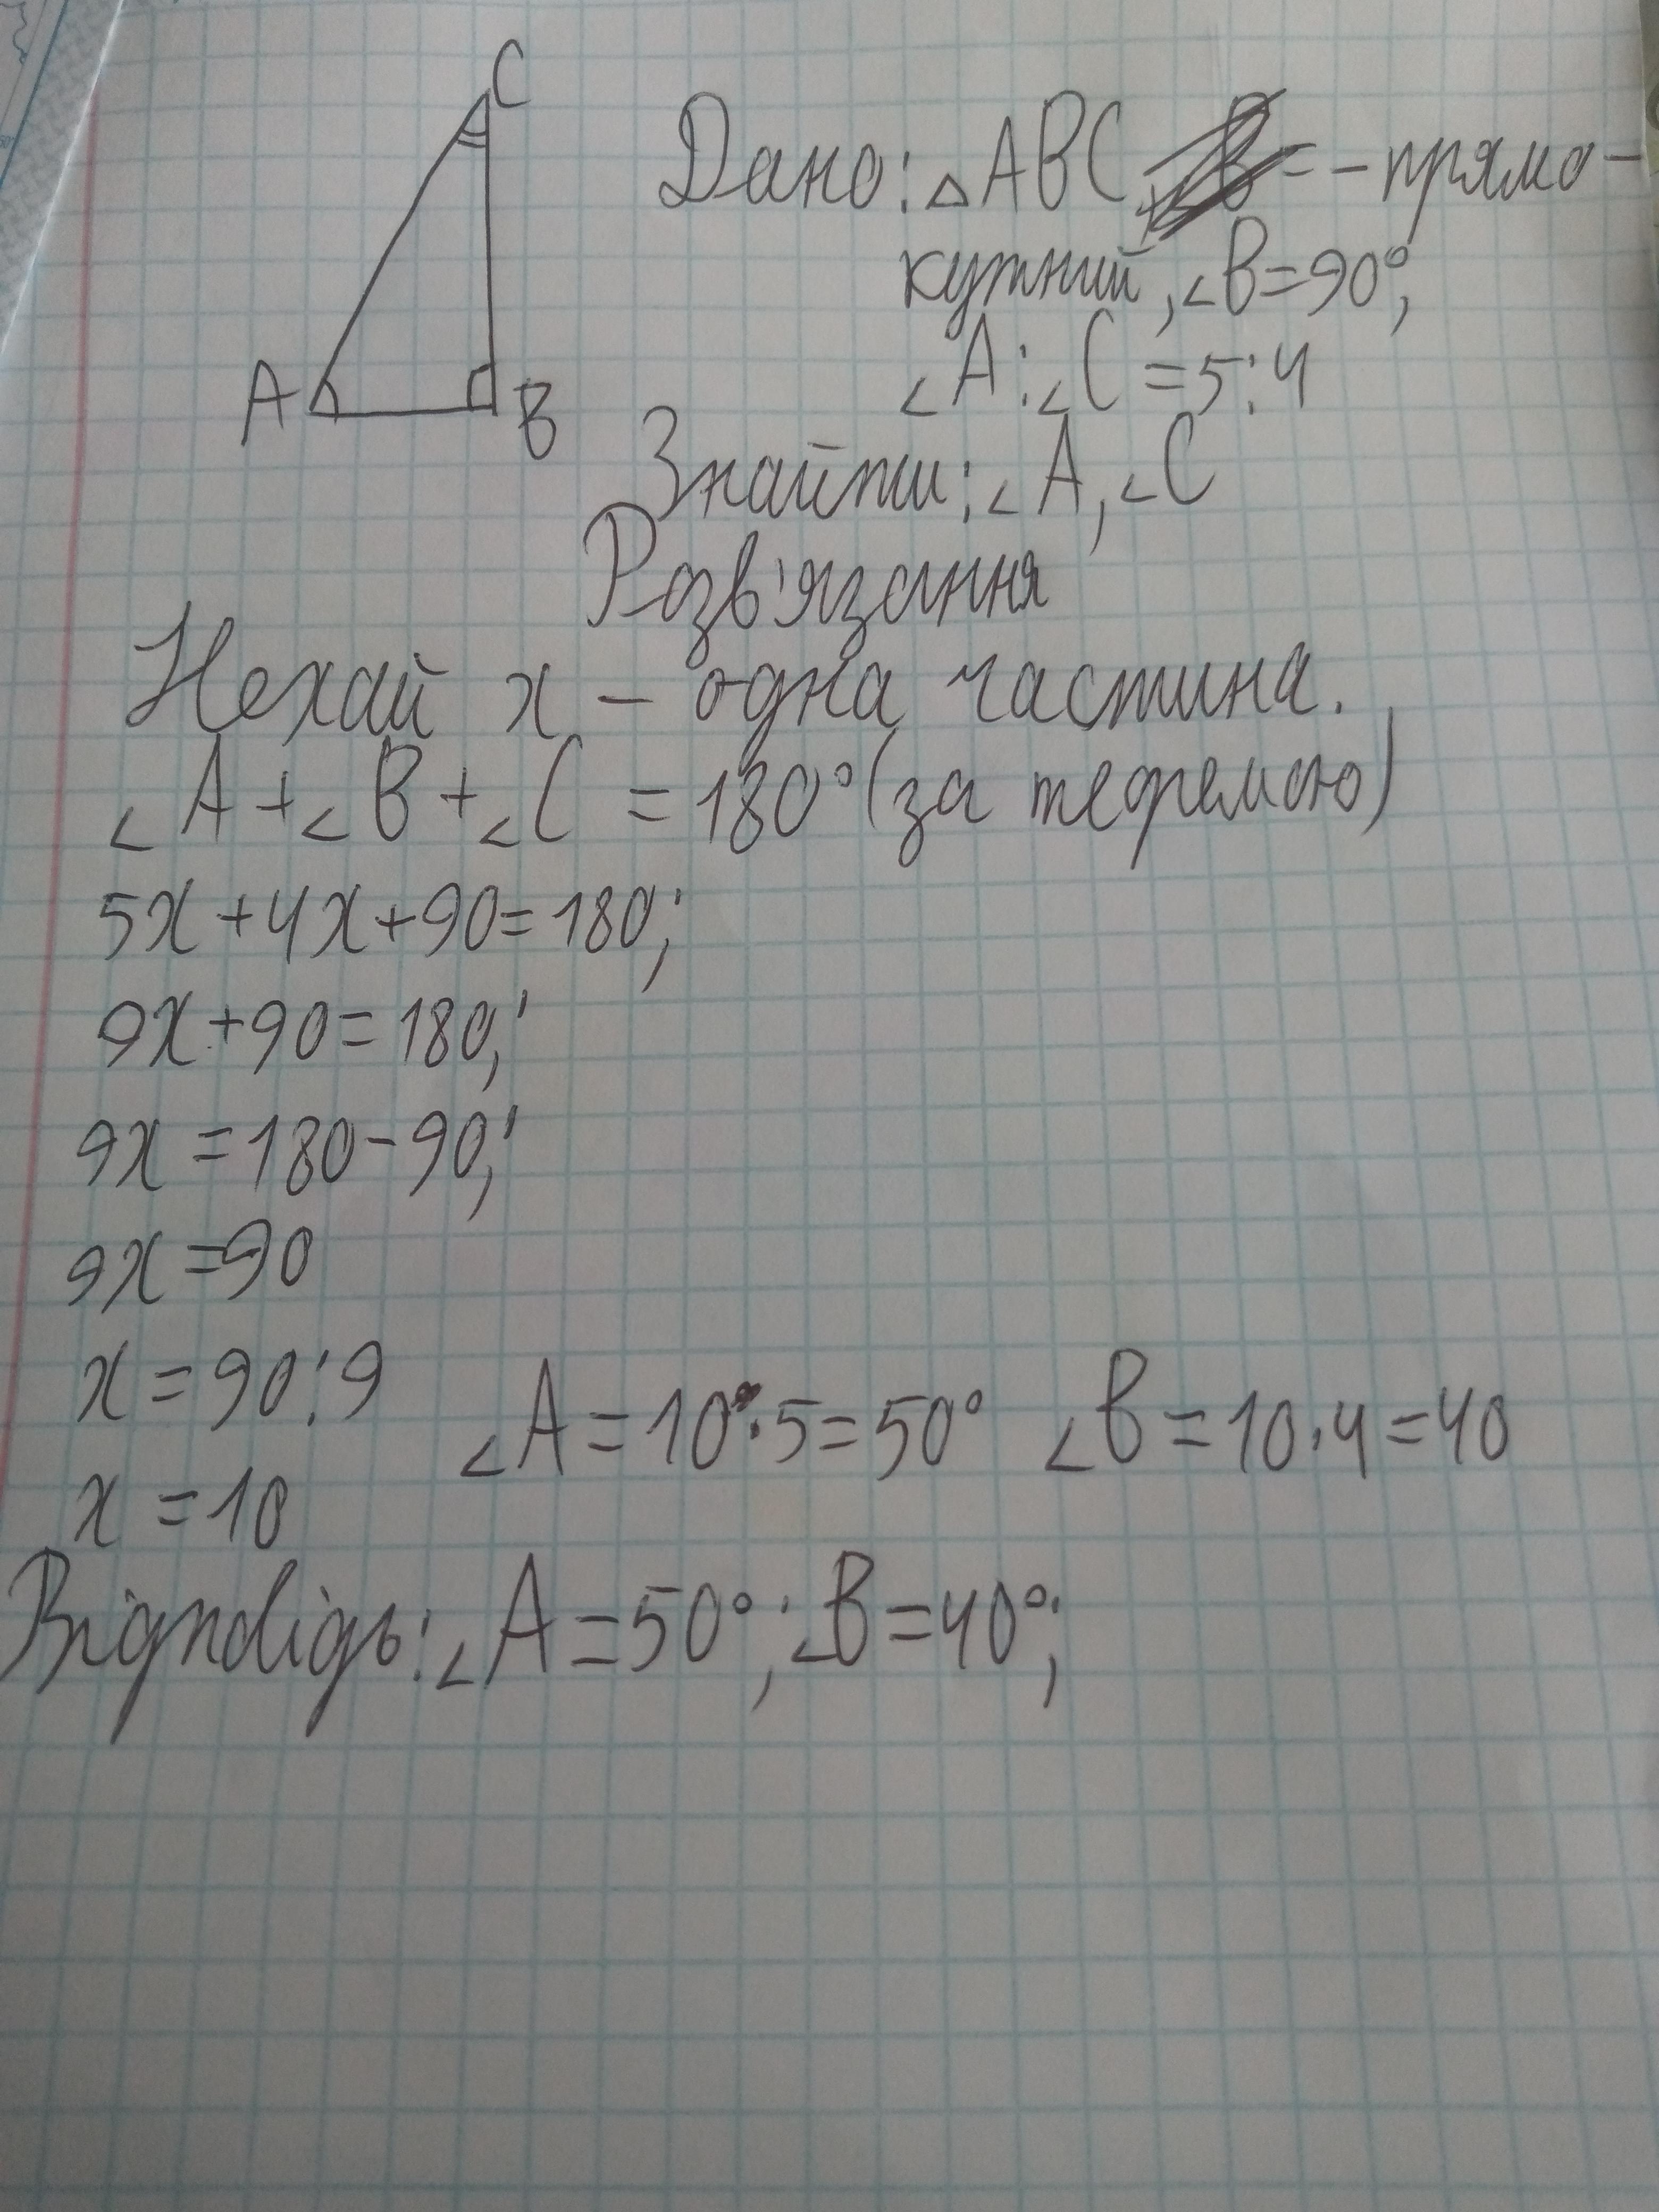 C
A
B
Дано: △ABC - прямо-
кутний, ∠B=90°;
∠A:∠C=5:4
Знайти: ∠A, ∠C
Розв'язання
Нехай x - одна частина.
∠A+∠B+∠C=180° (за теоремою)
5x+4x+90=180;
9x+90=180;
9x=180-90;
9x=90
x=90:9
∠A=10·5=50° ∠B=10·4=40
x=10
Відповідь: ∠A=50°; ∠B=40°;